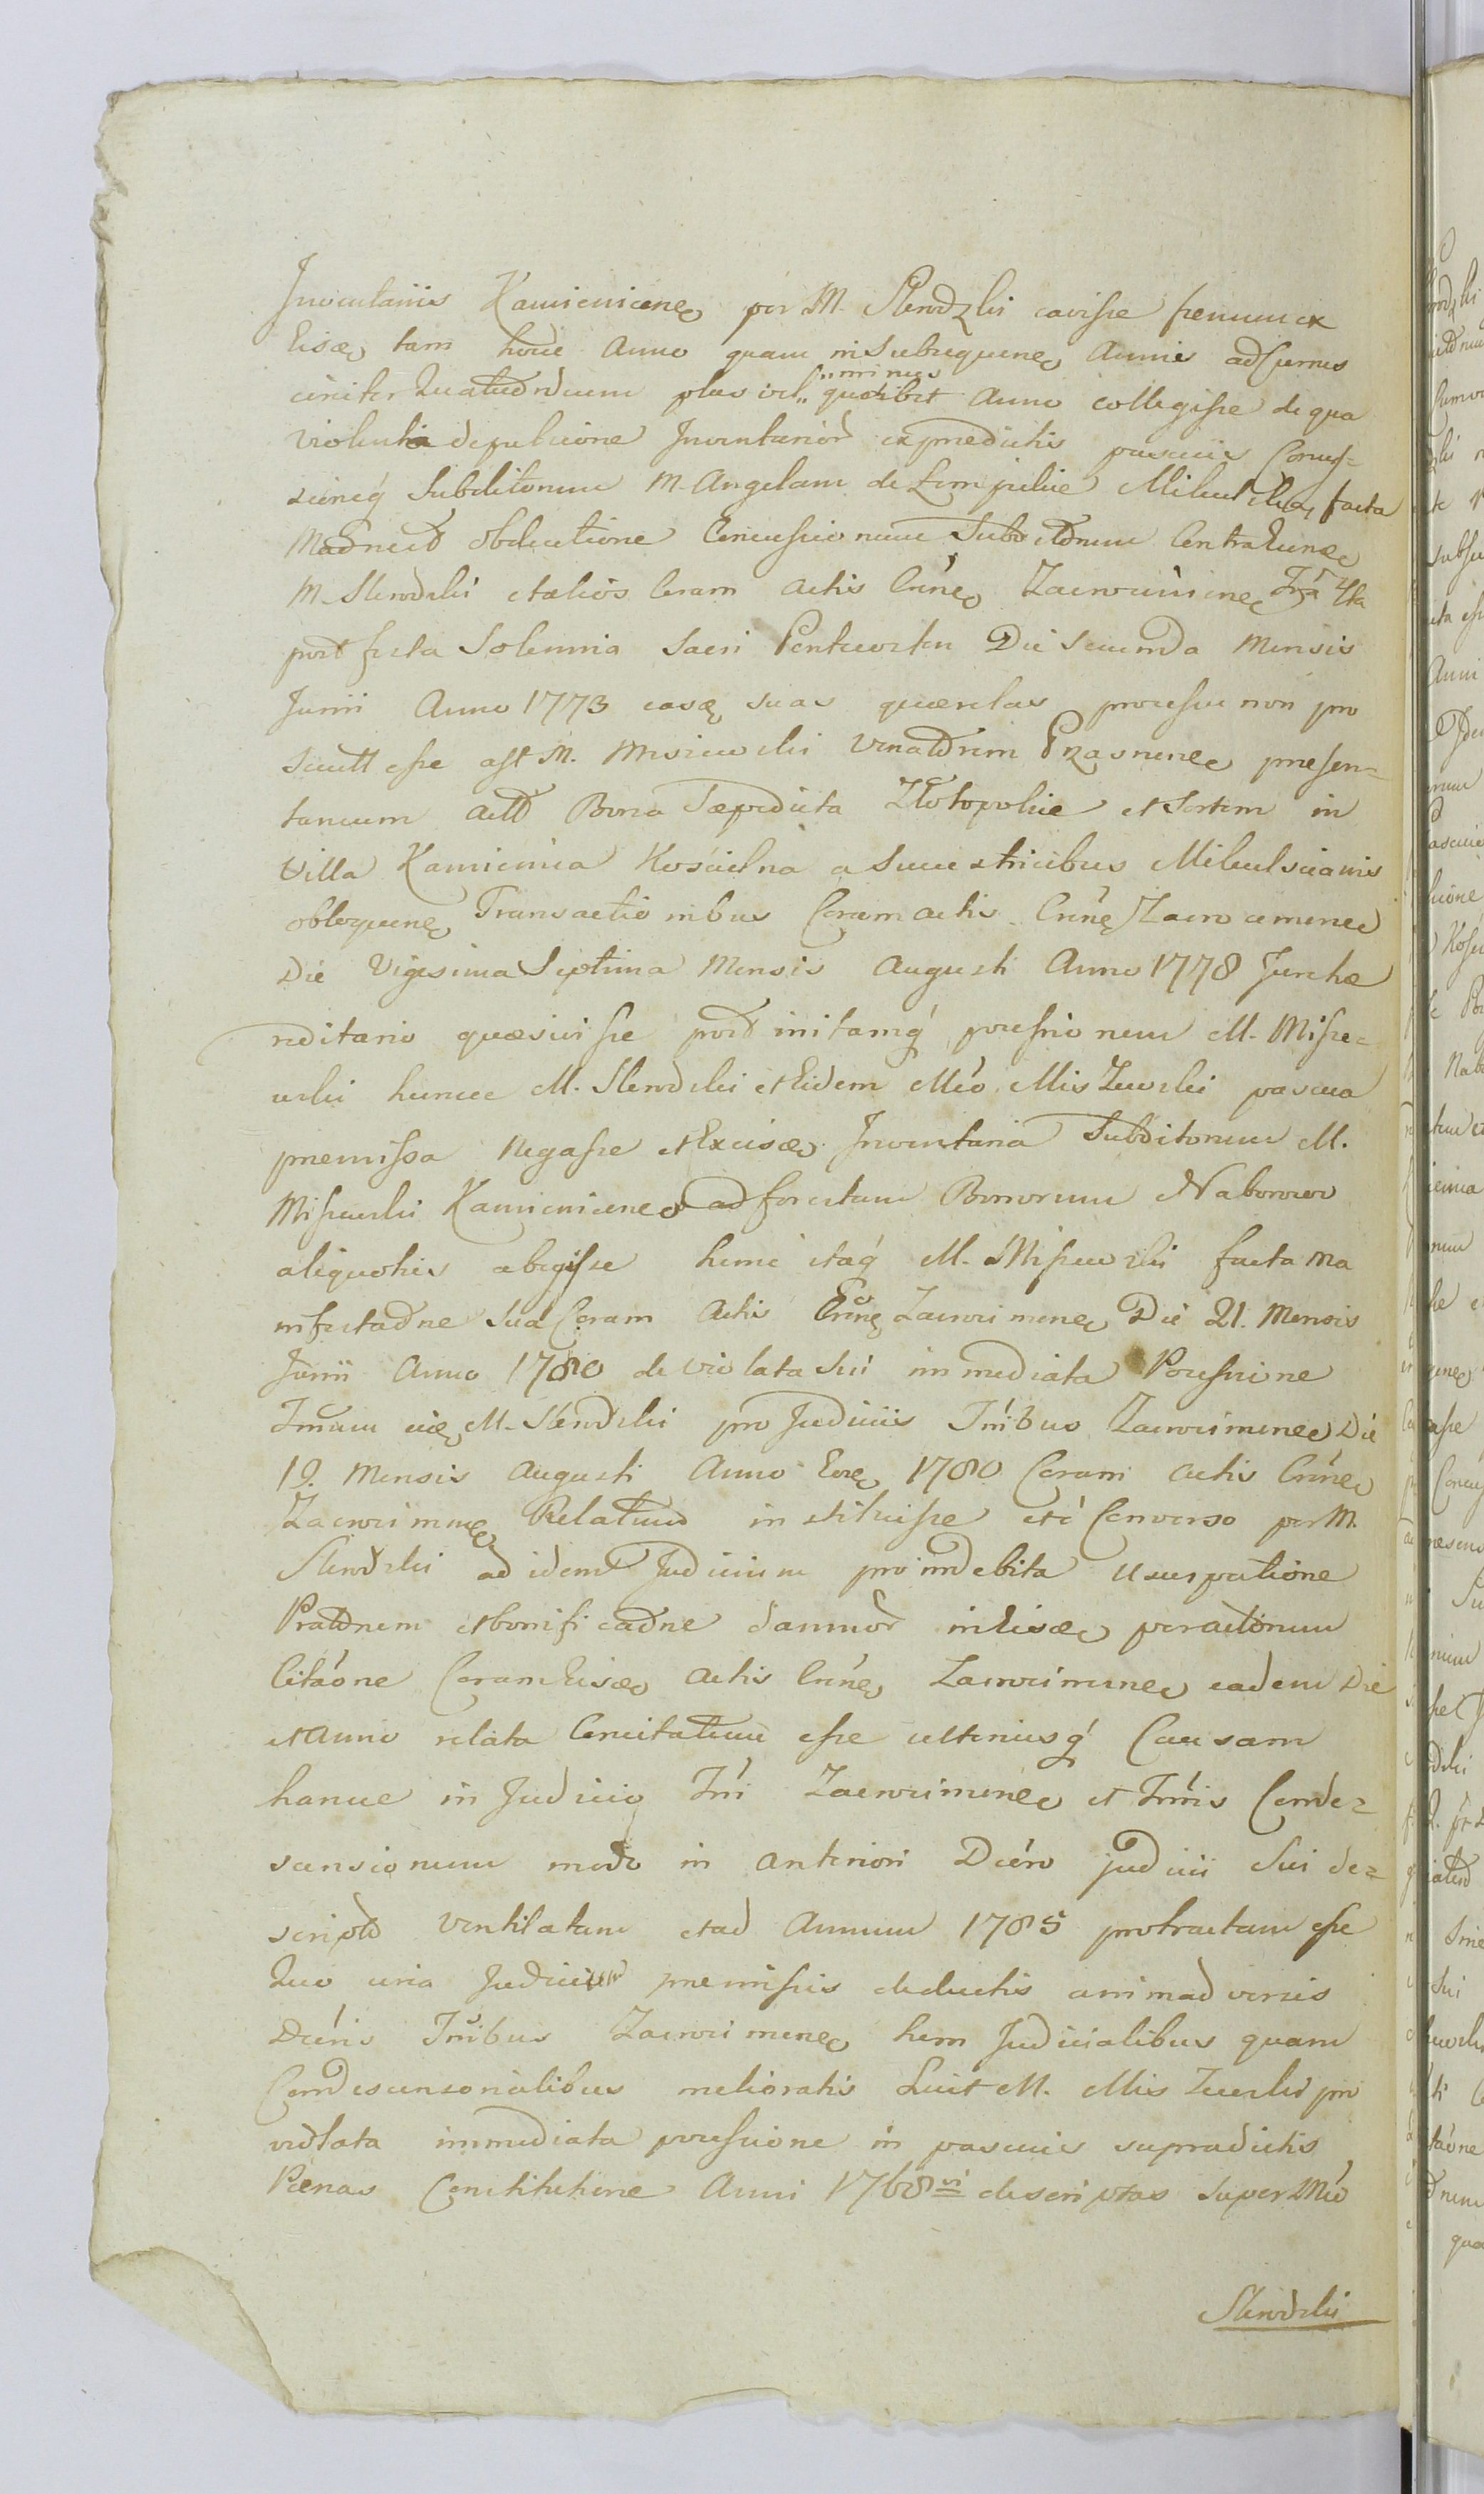 Inventariis Kamienicen per M. Skrodzki cavisse frenum ex
Eisdem tam hocce Anno quam in Subsequenen Annis adfumus
circiter Quatuordecim plus vel minus quolibet Anno collegisse de qua
violenta depulsione Inventarior ex praedictis pascuis Concus-
sioneq Subditorum M. Angelam de Lempickie Mikulska facta
obductione Concussionum Subditorum Contra Eunde
M. Skrodzki et alios Coram Actis Cren Zacroczimen Fria 4ta
post festa Solennia Sacri Pentecostes Die Secunda Mensis
Junii Anno 1773 easq suas quaerelas processu non pro
secutt esse ast M. Misiewski Venatorem Przasnen praesen-
taneum Actt Bona Saepedicta Złotopolie et Sortem in
Villa Kamienica Kościelna a Successtricibus Mikulscianis
obloquen Transactionibus Coram actis Cren Zacrocimen
Die Vigesima Septima Mensis Augusti Anno 1778 Jure hae
reditario quaesivisse post initamq possessionem M. Misie-
wski huncce M. Skrodzki et Eidem Mco Misiewski pascua
praemissa negasse et Exciso Inventaria Subditorum M.
Misiewski Kamienicen ad forestam Bonorum Naborowo
aliquoties abegisse hunc itaq M. Misiewski facta ma
nifestaone sua Coram Actis Cren Zacrocimen Die 21. Mensis
Junii Anno 1780 de violata sui immediata Possessione
Tmum M. Skrodzki pro Judiciis Trribus Zacrocimen Die
19. Mensis Augusti Anno Eoe 1780 Coram actis Cren
Zacrocimen Relatum instituisse et e Converso per M.
Skrodzki ad idem Judicium pro indebita usurpatione
Pratorum et bonificaone damnor in Eisde peractorum
Citaone Coram Eisde Actis Cren Zacrocimen eadem Die
et Anno relata Concitatum esse ulteriusq Causam
hancce in Judicio Trri Zacrocimen et Trris Conde-
scensionum modo in anteriori Dcero judicii Sui de-
scripto ventilatam et ad Annum 1785 protractam esse
Quo circa Judicium praemissis deductis animadversis
Dcris Trribus Zacrocimen tum Judicialibus quam
Condescensorialibus melioratis Luit M. Misiewski pro
violata immediata possessione in pascuis supradictis
Paenas Constitutione Anni 1768vi descriptas super Mco
Skrodzki